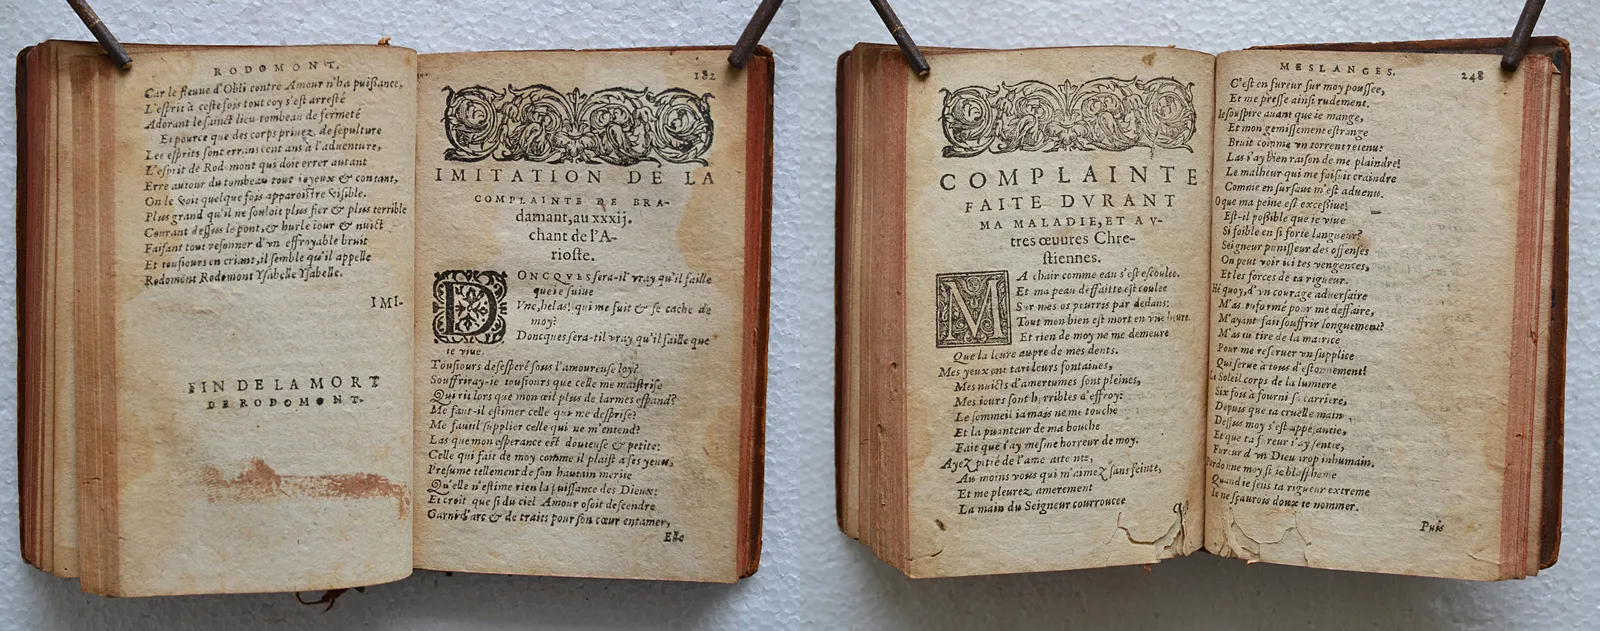 RODOMONT.
Car le fleuue d'Obli contre Amour n'ha puißance,
L'esprit à ceste fois tout coy s'est arresté
Adorant le sainct lieu tombeau de fermeté
Et pource que des corps priuez de sepulture
Les esprits sont errans cent ans à l'aduenture,
L'esprit de Rodomont qui doit errer autant
Erre autour du tombeau tout ioyeux & contant,
On le voit quelque fois apparoistre visible.
Plus grand qu'il ne souloit plus fier & plus terrible
Courant dessus le pont, & hurle iour & nuict
Faisant tout resonner d'vn effroyable bruit
Et tousiours en criant, il semble qu'il appelle
Rodomont Rodomont Ysabelle Ysabelle.
IMI-
FIN DE LA MORT
DE RODOMONT.
182
IMITATION DE LA
COMPLAINTE DE BRA-
damant, au xxxij.
chant de l'A-
rioste.
DONCQVES sera-il vray qu'il faille
que ie suiue
Vne, helas! qui me fuit & se cache de
moy?
Doncques sera-til vray qu'il faille que
ie viue
Tousiours desesperé sous l'amoureuse loy?
Souffriray-ie tousiours que celle me maistrise
Qui rit lors que mon œil plus de larmes espand?
Me faut-il estimer celle qui me desprise?
Me fautil supplier celle qui ne m'entend?
Las que mon esperance est douteuse & petite:
Celle qui fait de moy comme il plaist a ses yeux,
Presume tellement de son hautain merite
Qu'elle n'estime rien la puissance des Dieux:
Et croit que si du ciel Amour osoit descendre
Garni d'arc & de traits pour son cœur entamer,
Elle
COMPLAINTE
FAITE DVRANT
MA MALADIE, ET AV-
tres œuures Chre-
stiennes.
MA chair comme eau s'est escoulee.
Et ma peau deffaitte est coulee
Sur mes os pourris par dedans:
Tout mon bien est mort en vne heure
Et rien de moy ne me demeure
Que la leure aupre de mes dents.
Mes yeux ont tari leurs fontaines,
Mes nuicts d'amertumes sont pleines,
Mes iours sont horribles d'effroy:
Le sommeil iamais ne me touche
Et la puanteur de ma bouche
Fait que i'ay mesme horreur de moy.
Ayez pitié de l'ame
Au moins vous qui m'aimez sans feinte,
Et me pleurez amerement
La main du Seigneur courroucee
MESLANGES.
248
C'est en fureur sur moy poussee,
Et me presse ainsi rudement.
Ie souspire auant que ie mange,
Et mon gemissement estrange
Bruit comme vn torrent retenu:
Las i'ay bien raison de me plaindre!
Le malheur qui me faisoit craindre
Comme en sursaut m'est aduenu.
O que ma peine est excessiue!
Est-il poßible que ie viue
Si foible en si forte langueur?
Seigneur punisseur des offenses
On peut voir ici tes vengences,
Et les forces de ta rigueur.
Hé quoy, d'vn courage aduersaire
M'as-tu formé pour me deffaire,
M'ayant fait souffrir longuement?
M'as tu tiré de la matrice
Pour me reseruer vn supplice
Qui serue à tous d'estonnement!
Le Soleil corps de la lumiere
Six fois a fourni sa carriere,
Depuis que ta cruelle main
Dessus moy s'est appesantie,
Et que ta fureur i'ay sentie,
Fureur d'vn Dieu trop inhumain.
Pardonne moy si ie blaspheme
Quand ie sens ta rigueur extreme
Ie ne sçaurois doux te nommer.
Puis